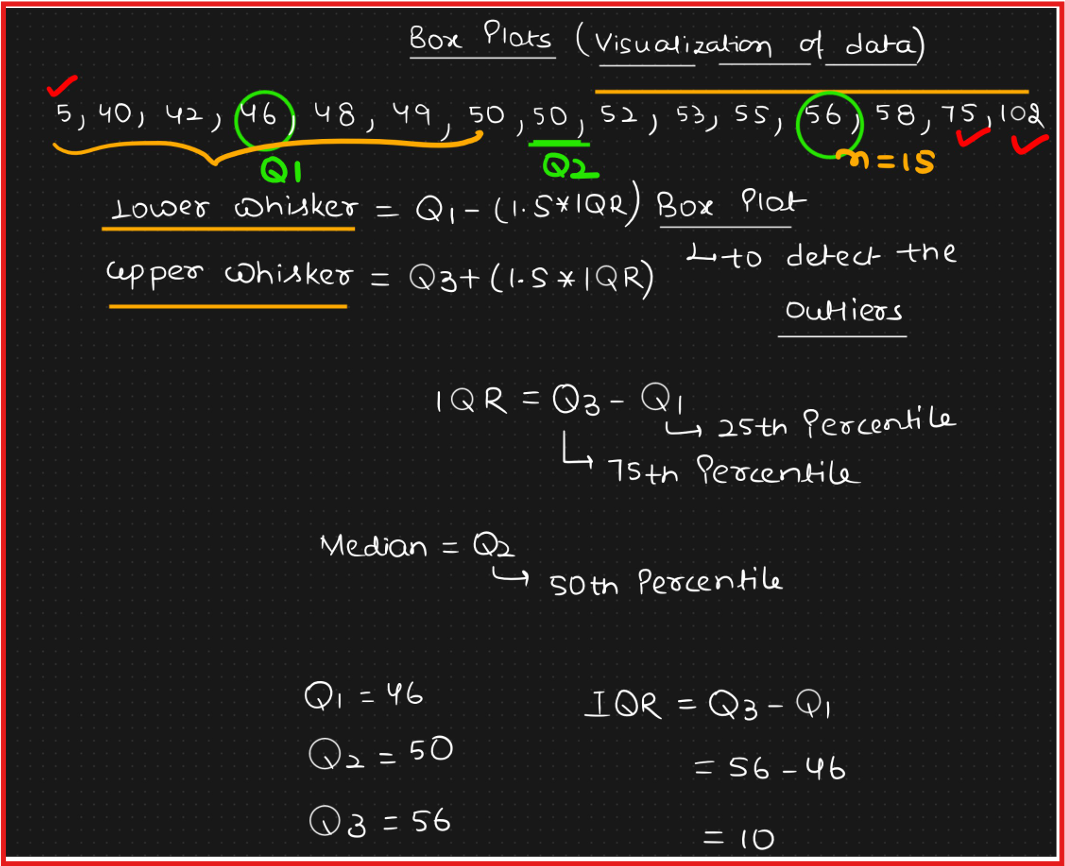 Box Plots (Visualization of data)
5, 40, 42, 46, 48, 49, 50, 50, 52, 53, 55, 56, 58, 75, 102
Q1 Q2 n=15
Lower whisker = Q1-(1.5*IQR) Box Plot
↳ to detect the
upper whisker = Q3+(1.5*IQR)
outliers
IQR = Q3 - Q1
↳ 25th Percentile
↳ 75th Percentile
Median = Q2
↳ 50th Percentile
Q1 = 46
IQR = Q3 - Q1
Q2 = 50
= 56 - 46
Q3 = 56
= 10